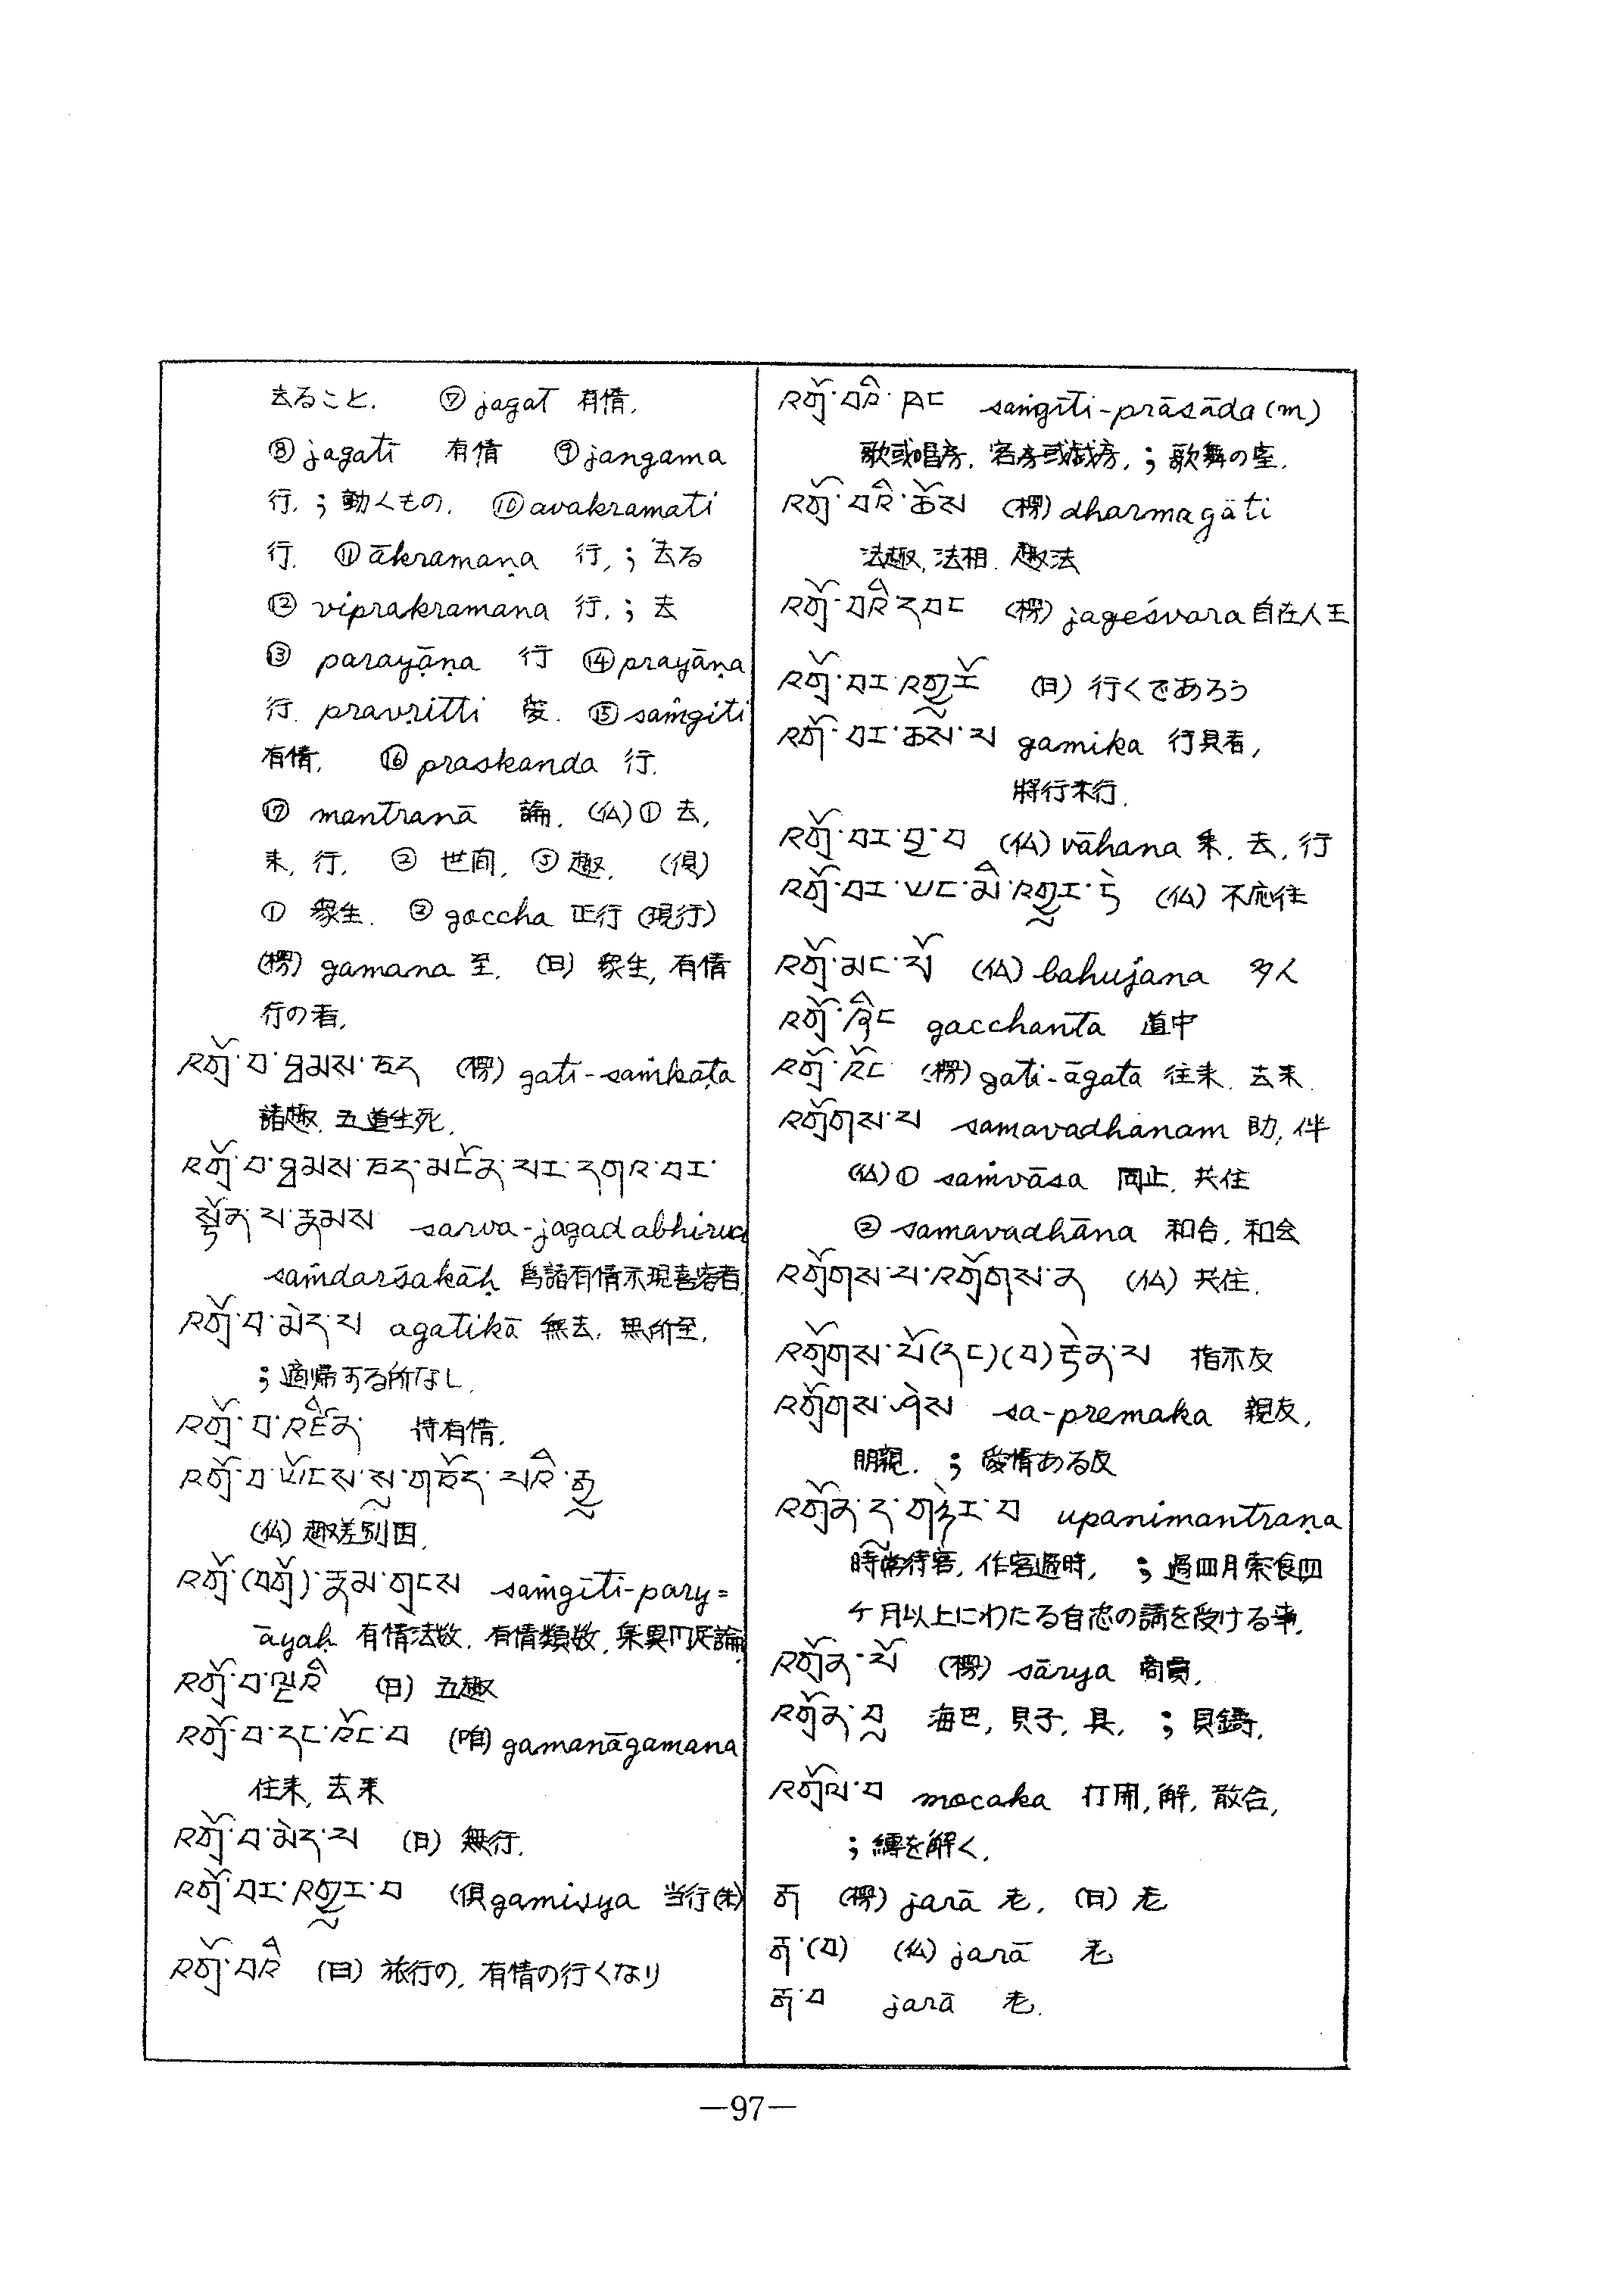 去ること. ⑦ jagat 有情.
⑧ jagati 有情 ⑨ jangama
行. ; 動くもの. ⑩ avakramati
行. ⑪ ākramaṇa 行. ; 去る
⑫ viprakramana 行. ; 去
⑬ parayāṇa 行 ⑭ prayāṇa
行. pravṛitti 発. ⑮ saṁgiti
有情. ⑯ praskanda 行.
⑰ mantranā 論. (仏)① 去,
来, 行. ② 世間, ③ 趣. (倶)
① 衆生. ② gaccha 正行 (現行)
(楞) gamana 至. (日) 衆生, 有情
行の者.
འགྲོ་བ་ཐམས་ཅད (楞) gati-saṁkāṭa
諸趣. 五道生死.
འགྲོ་བ་ཐམས་ཅད་མངོན་པར་དགའ་བར་
སྟོན་པ་རྣམས sarva-jagad abhiruci
saṁdarśakāḥ 為諸有情示現喜楽者.
འགྲོ་བ་མེད་པ agatikā 無去. 無所至.
; 適帰する所なし.
འགྲོ་བ་འཛིན་ 持有情.
འགྲོ་བ་ཡོངས་སུ་གཅོད་པའི་རྒྱུ
(仏) 趣差別因.
འགྲོ་(བགྲོ)་རྣམ་གྲངས saṁgīti-pary=
āyaḥ 有情法数. 有情類数, 集異門足論.
འགྲོ་བ་ལྔའི (日) 五趣
འགྲོ་བ་དང་འོང་བ gamanāgamana
往来, 去来
འགྲོ་བ་མེད་པ (日) 無行.
འགྲོ་བར་འགྱུར་བ (倶) gamisya 当行(未)
འགྲོ་བའི (日) 旅行の, 有情の行くなり
འགྲོ་བའི་ཁང saṁgīti-prāsāda (m)
歌或唱房. 客房或戯房. ; 歌舞の室.
འགྲོ་བའི་ཆོས (楞) dharmagāti
法趣, 法相. 趣法
འགྲོ་བའི་དབང (楞) jageśvara 自在人王
འགྲོ་བར་འགྱུར་རོ (日) 行くであろう
འགྲོ་བར་ཆས་པ gamika 行具者,
將行未行.
འགྲོ་བར་བྱ་བ (仏) vāhana 乗. 去. 行
འགྲོ་བར་ཡང་མི་འགྱུར་ཏེ (仏) 不応往
འགྲོ་མང་པོ (仏) bahujana 多人
འགྲོ་ཞིང gacchanta 道中
འགྲོ་འོང (楞) gati-āgata 往来. 去来.
འགྲོགས་པ samavadhanam 助, 伴
(仏)① saṁvāsa 同止. 共住
② samavadhāna 和合. 和会
འགྲོགས་པ་འགྲོགས་ན (仏) 共住.
འགྲོགས་པོ(དང)(བ)རྟེན་པ 指示友
འགྲོགས་ཤེས sa-premaka 親友,
朋親. ; 愛情ある友
འགྲོན་དུ་གཉེར་བ upanimantraṇa
時常待客, 作客過時. ; 過四月索食四
ケ月以上にわたる自恣の請を受ける事.
འགྲོན་པོ (楞) sārya 商賈.
འགྲོན་བུ 海巴, 貝子, 具. ; 貝鑄.
འགྲོལ་བ mocaka 打開, 解, 散合,
; 縛を解く.
རྒ (楞) jarā 老. (日) 老
རྒ་(བ) (仏) jarā 老
རྒ་བ jarā 老.
—97—